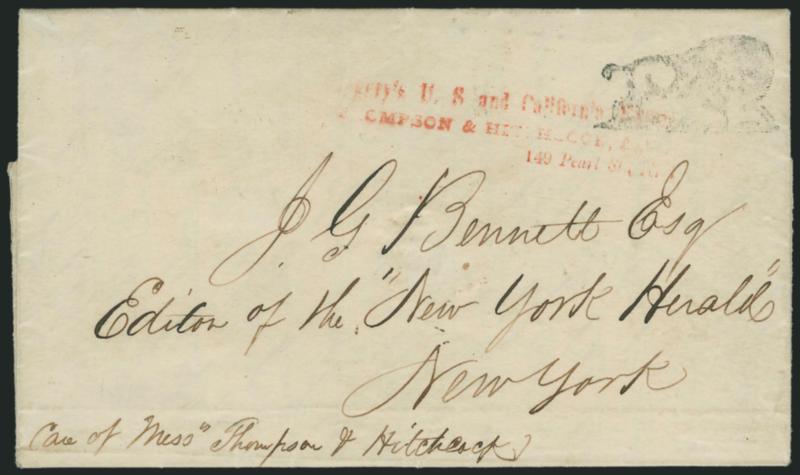 U. S and California
& 
149 Pearl St.,
J G Bennett Esq
Editor of the "New York Herald"
New York
Care of Mess" Thompson & Hitchcock